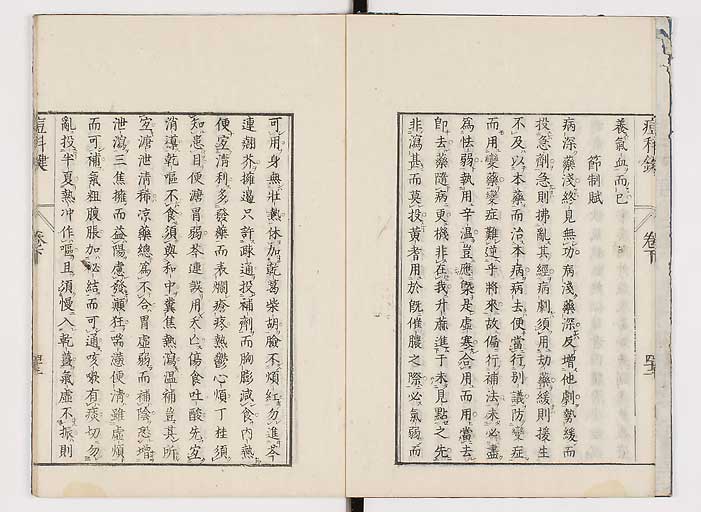 養氣血而已
節制賦
病深藥淺終見無功病淺藥深反增他劇勢緩而
投急劑急則拂亂其經病劇須用劫藥緩則援生
不及以本藥而治本病病去便當行別議防變症
而用變藥變症難逆乎將來故偏行補法未必盡
為怯弱執用辛溫豈應槩是虛寒合用而用當去
即去藥隨病更機非在我升麻進于未見點之先
非瀉甚而莫投黃耆用於旣催膿之際必氣弱而
可用身無壯熱休加乾葛柴胡臉不煩紅勿進芩
連翹芥擁遏只許疎通投補劑而胸膨減食內熱
便宜清利多發藥而表爛瘡疼熱鬱心煩丁桂須
知患目便溏胃弱芩連誤用大亡傷食吐酸先宜
消導乾嘔不食須與和中糞焦熱瀉溫補豈其所
宜溏泄清稀凉藥總為不合胃虛弱而補陰恐增
泄瀉三焦擁而益陽慮發顛狂喘懣便清雖虛煩
而可補氣粗腹脹加必結而可通咳嗽有痰切勿
亂投半夏熱冲作嘔且須慢入乾薑氣虛不振則
痘科鍵
卷下